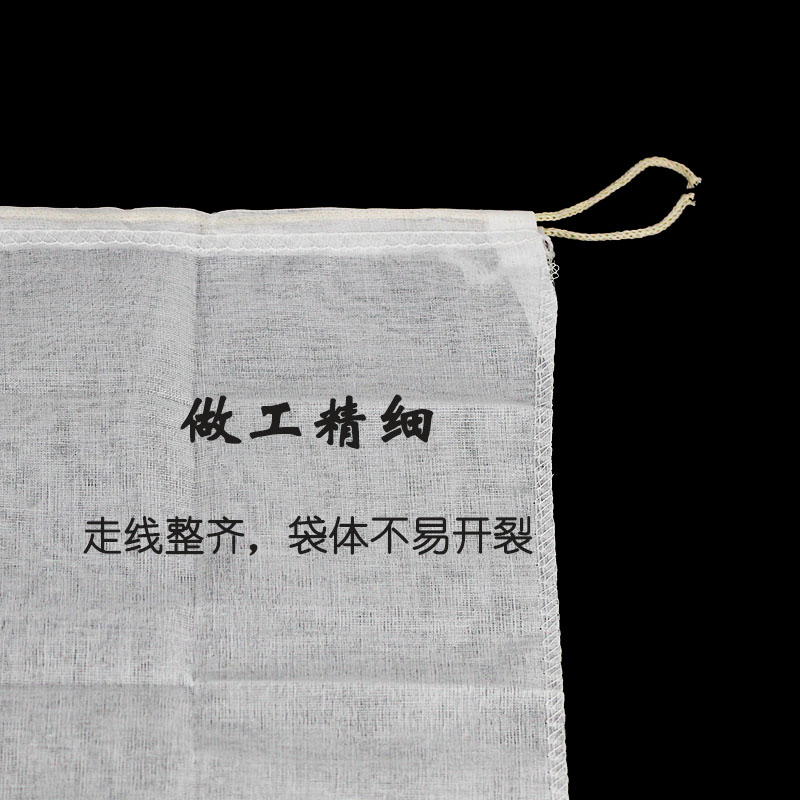 做工精细
走线整齐，袋体不易开裂